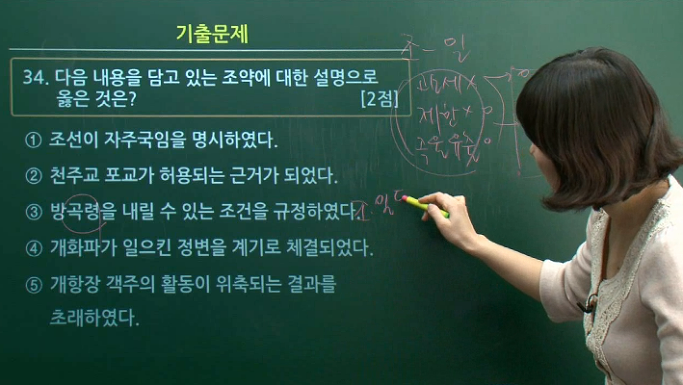 기출문제
34. 다음 내용을 담고 있는 조약에 대한 설명으로
옳은 것은? [2점]
① 조선이 자주국임을 명시하였다.
② 천주교 포교가 허용되는 근거가 되었다.
③ 방곡령을 내릴 수 있는 조건을 규정하였다.
④ 개화파가 일으킨 정변을 계기로 체결되었다.
⑤ 개항장 객주의 활동이 위축되는 결과를
초래하였다.
조-일
관세 x
제한 x
곡물유출